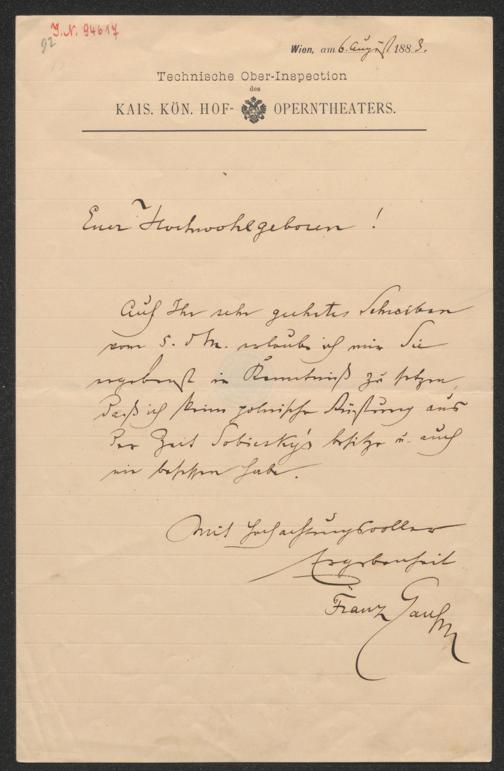 J.N. 94617
92
Wien, am 6. August 1883.
Technische Ober-Inspection
des
KAIS. KÖN. HOF- OPERNTHEATERS.
Euer Hochwohlgeboren!
Auf Ihr sehr geehrtes Schreiben
vom 5. d M. erlaube ich mir Sie
ergebenst in Kenntniß zu setzen,
daß ich keine polnische Rüstung aus
der Zeit Sobiesky's besitze u. auch
nie besessen habe.
Mit hochachtungsvoller
Ergebenheit
Franz